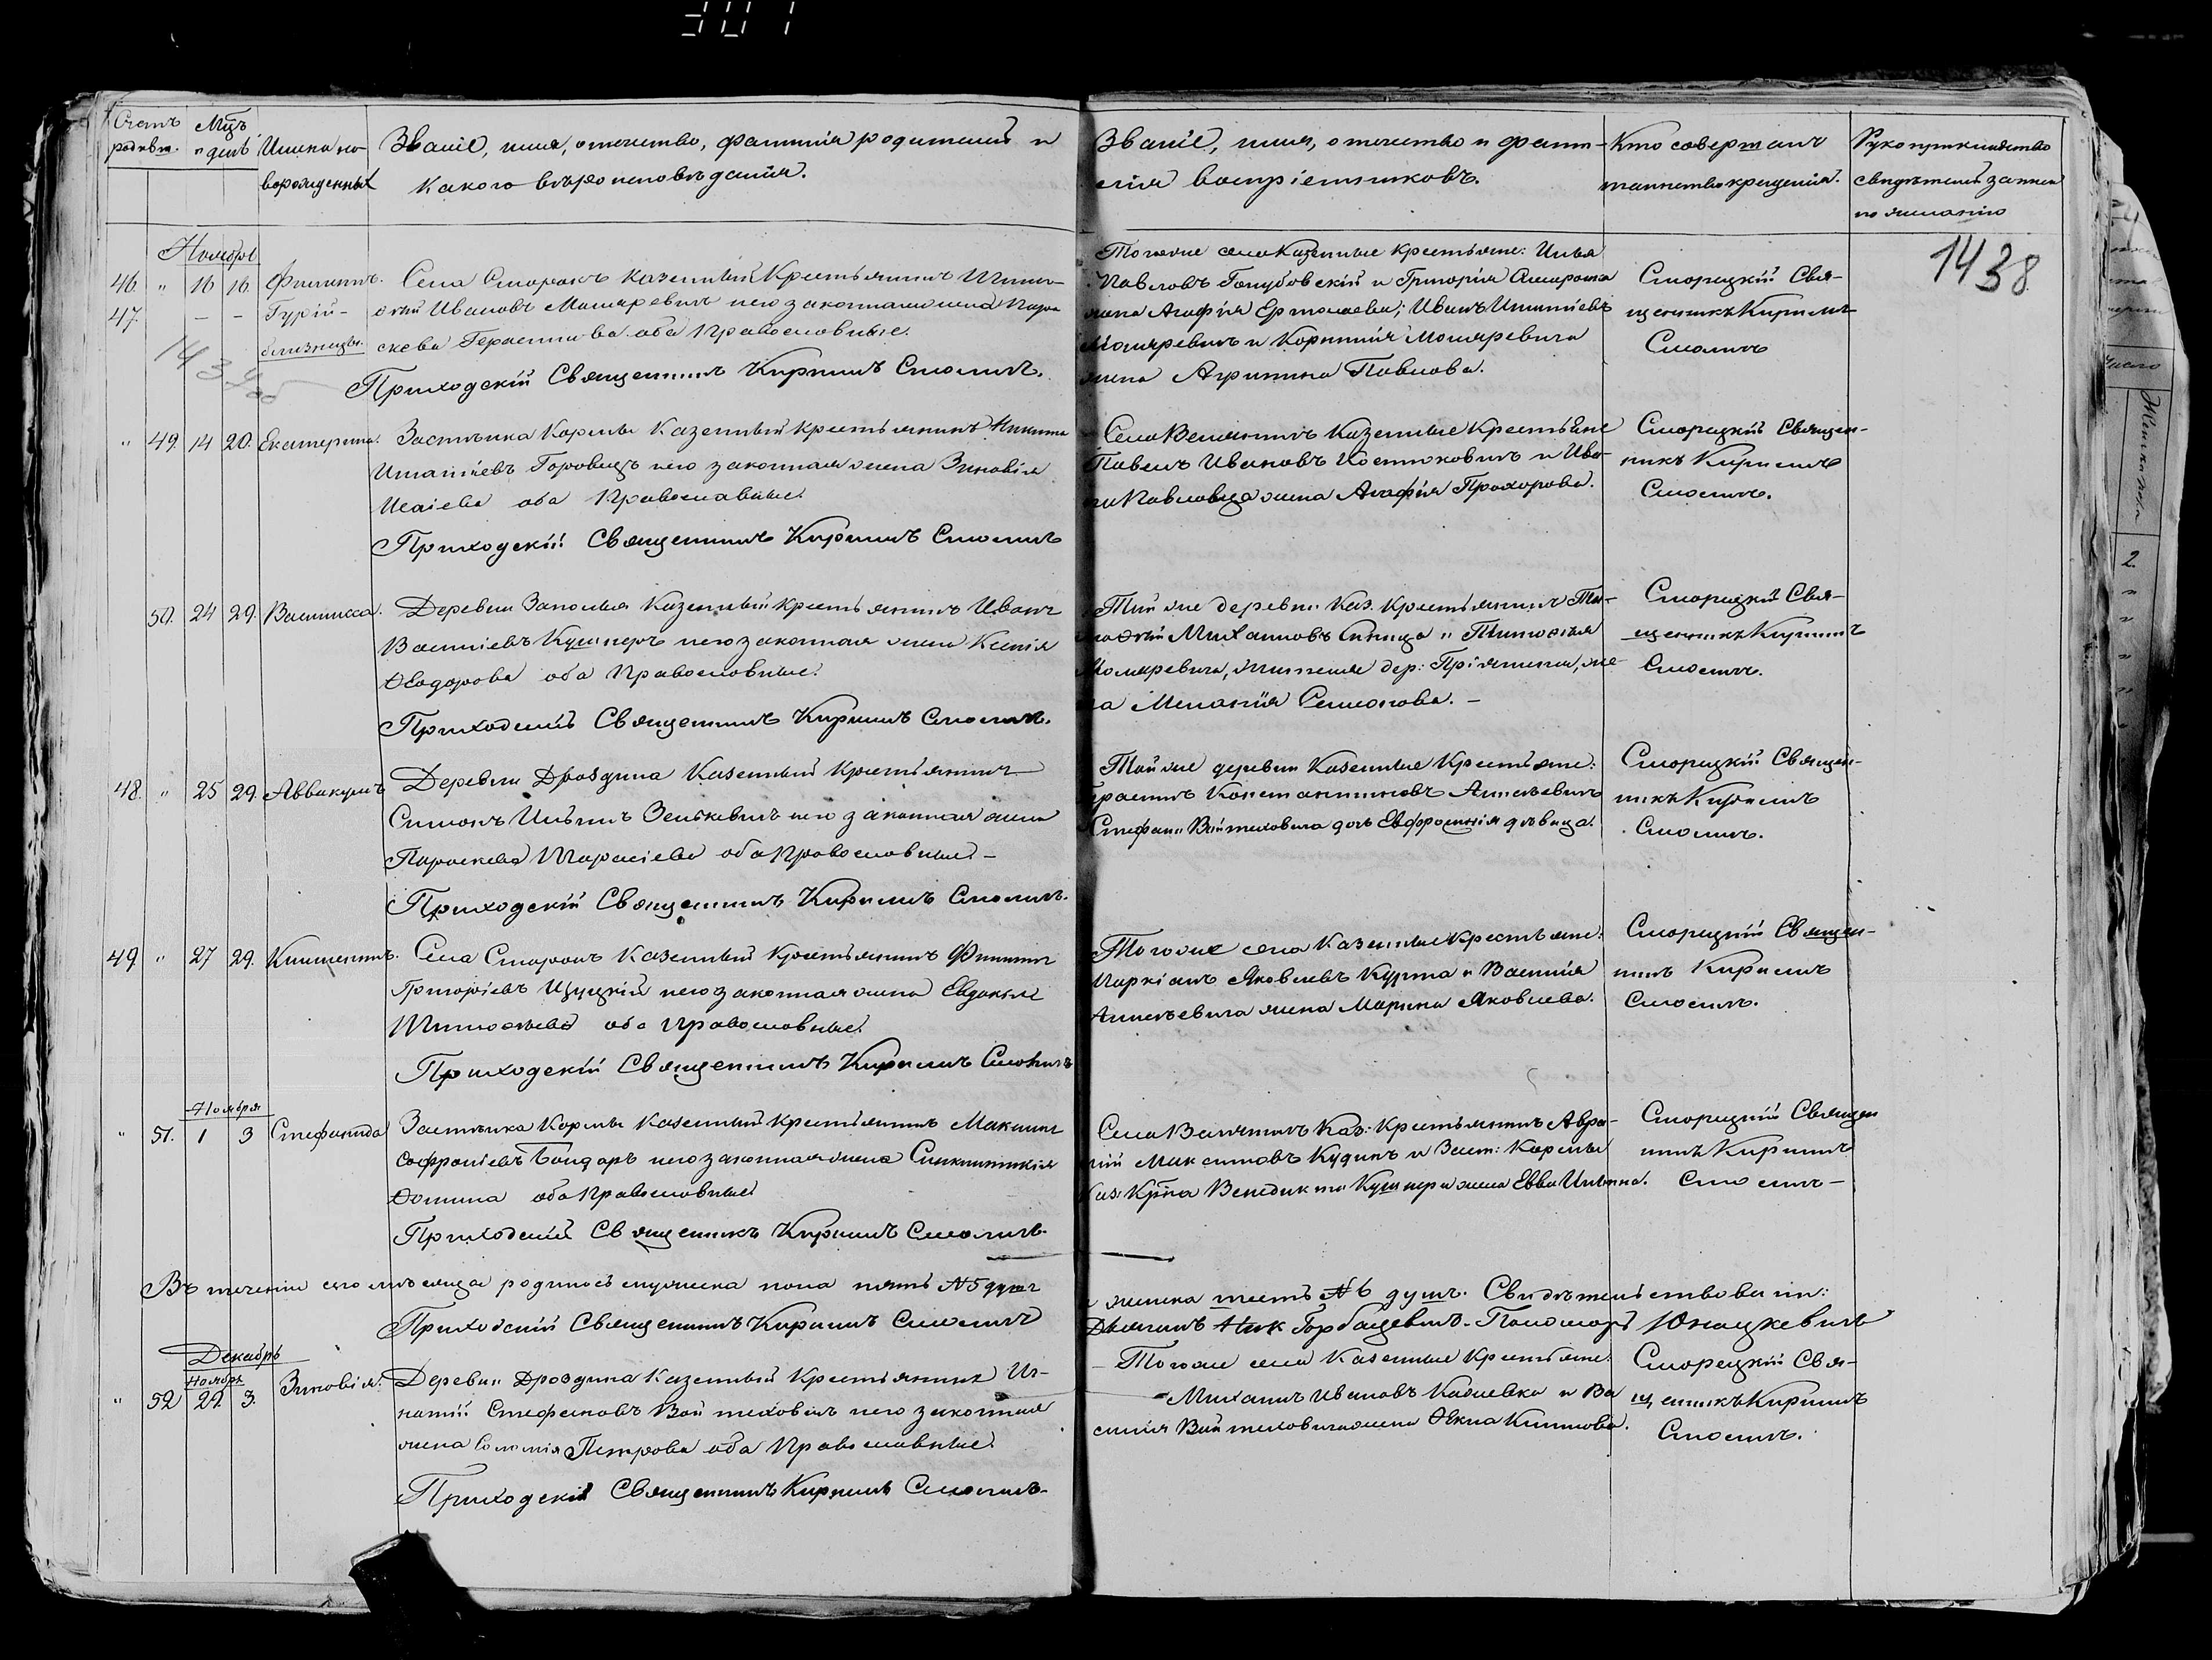 307
Счетъ родивш.
Мцъ и день
Имена но-
ворожденных
Званіе, имя, отечество, фамилія родителей и
какого вѣроисповѣданія.
Званіе, имя, отечество и фами-
лія воспріемниковъ.
Кто совершалъ
таинство крещенія.
Рукоприкладство
свидѣтелей записи
по желанію
1438
Ноябрь
46. " 16 16. Филиппъ.
47. – – Гурій –
близнецы.
Села Сторожъ казенный Крестьянинъ
Ивановъ Моляревичъ и его законная жена Пара-
скева Герасимова оба Православные.
Приходскій Священникъ Кириллъ Смоличъ.
Того же села Казенные Крестьяне: Илья
Павловъ Голубовскій и Григорія
жена Агафія Ермолаева; Иванъ Игнатіевъ
Моляревичъ и Корнилія Моляревича
жена Агрипина Павлова.
Сморицкій Свя-
щенникъ Кириллъ
Смоличъ
" 49. 14 20. Екатерина.
Застѣнка Кормы Казенный крестьянинъ Никита
Игнатіевъ Горовецъ и его законная жена Зиновія
Исаіева оба Православные.
Приходскій Священникъ Кириллъ Смоличъ
Села Велятичъ Казенные Крестьяне
Павелъ Ивановъ Костюковичъ и Ива-
на Павловца жена Агафія Прохорова.
Сморицкій Священ-
никъ Кириллъ
Смоличъ.
50. 24 29. Василисса.
Деревни Заполья Казенный крестьянинъ Иванъ
Василіевъ Кушнеръ и его законная жена Ксенія
Ѳеодорова оба Православные.
Приходскій Священникъ Кириллъ Смоличъ.
Той же деревни Каз. Крестьянинъ Ти-
моѳей Михаиловъ Синица и Тимоѳея
Моляревича, жителя дер: Пріямина, же-
на Меланія Семенова. –
Сморицкій Свя-
щенникъ Кириллъ
Смоличъ.
48. " 25 29. Аввакумъ
Деревни Дроздина Казенный Крестьянинъ
Симонъ Ильинъ Зенькевичъ и его законная жена
Параскева Тарасіева оба Православные –
Приходскій Священникъ Кириллъ Смоличъ.
Той же деревни Казенные Крестьяне:
Герасимъ Константиновъ Алисѣевичъ
Стефана Войтеховича дочь Евфросинія дѣвица.
Сморицкій Священ-
никъ Кириллъ
Смоличъ.
49. " 27 29. Климентъ.
Села Сторожъ Казенный Крестьянинъ Филиппъ
Григоріевъ и его законная жена Евдокія
Тимоѳеева оба Православные.
Приходскій Священникъ Кириллъ Смоличъ
Того же села Казенные Крестьяне:
Маркіанъ Яковлевъ Курта и Василія
Алисѣевича жена Марина Яковлева.
Сморицкій Священ-
никъ Кириллъ
Смоличъ.
Ноября
" 51. 1 3 Стефанида
Застѣнка Кормы Казенный Крестьянинъ Максимъ
Софроніевъ Бондарь и его законная жена Синклитикія
Ѳомина оба Православные
Приходскій Священникъ Кириллъ Смоличъ.
Села Велятичъ Каз: Крестьянинъ Авра-
мій Максимовъ Кудинъ и Заст: Кормы
Каз: Крна Венедикта Кушнера жена Евва Ильина.
Сморицкій Священ
никъ Кириллъ
Смоличъ –
Въ теченіи сего мѣсяца родилось мужеска пола пять №5 душъ
Приходскій Священникъ Кириллъ Смоличъ
и женска шесть №6 душъ. Свидѣтельствовали:
Дьячекъ Ник Горбацевичъ. Пономарь Юнацкевичъ
Декабрь
Ноября
" 52 29. 3. Зиновія.
Деревни Дроздина Казенный Крестьянинъ Иг-
натій Стефановъ Войтеховичъ и его законная
жена Соломія Петрова оба Православные.
Приходскій Священникъ Кириллъ Смоличъ.
– Того же села Казенные Крестьяне:
Михаилъ Ивановъ и Ва
силія Войтеховича жена Ѳекла Климова.
Сморицкій Свя-
щенникъ Кириллъ
Смоличъ.